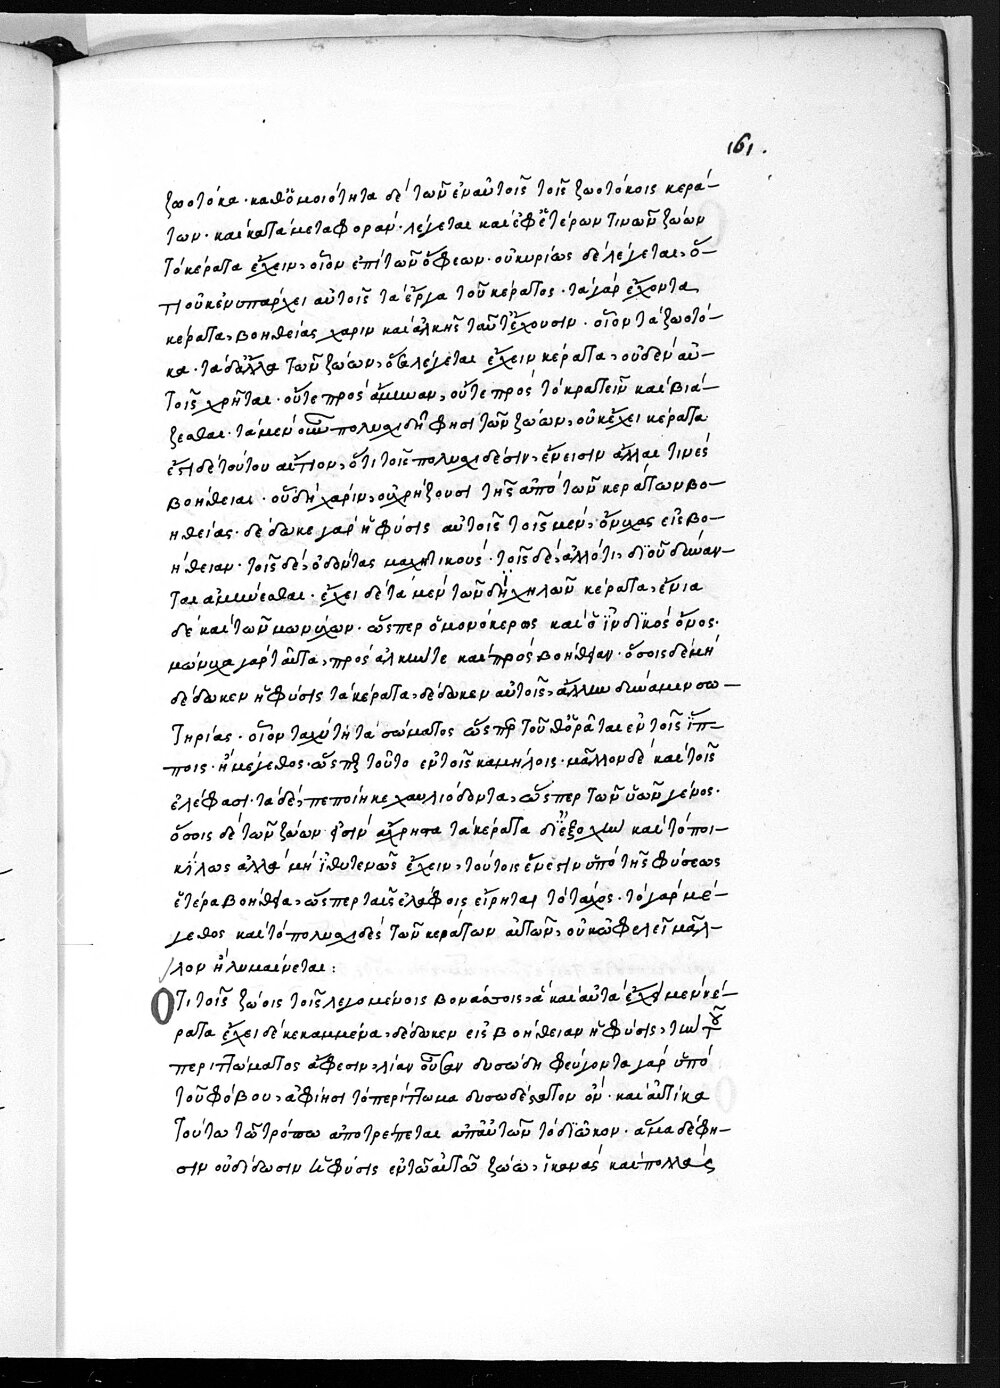 161.
ζωοτόκα· καθ' ὁμοιότητα δὲ τῶν ἐν αὐτοῖς τοῖς ζωοτόκοις κερά-
των· καὶ κατὰ μεταφορὰν· λέγεται καὶ ἐφ' ἑτέρων τινῶν ζώων
τὸ κέρατα ἔχειν, οἷον ἐπὶ τῶν ὄφεων· οὐ κυρίως δὲ λέγεται, ὅ-
τι οὐκ ἐνυπάρχει αὐτοῖς τὰ ἔργα τοῦ κέρατος· τὰ γὰρ ἔχοντα
κέρατα, βοηθείας χάριν καὶ ἀλκῆς ταῦτ' ἔχουσιν· οἷον τὰ ζωοτό-
κα· τὰ δ' ἄλλα τῶν ζώων, ὅσα λέγεται ἔχειν κέρατα, οὐδὲν αὐ-
τοῖς χρῆται· οὔτε πρὸς ἄμυναν, οὔτε πρὸς τὸ κρατεῖν καὶ βιά-
ζεσθαι· τὰ μὲν οὖν πολυσχιδῆ φησι τῶν ζώων, οὐκ ἔχει κέρατα
ἐστὶ δὲ τούτου αἴτιον, ὅτι τοῖς πολυσχιδέσιν, ἔνεισιν ἄλλαι τινὲς
βοήθειαι· οὗ δὴ χάριν, οὐ χρήζουσι τῆς ἀπὸ τῶν κεράτων βο-
ηθείας· δέδωκε γὰρ ἡ φύσις αὐτοῖς τοῖς μὲν, ὄνυχας εἰς βο-
ήθειαν· τοῖς δὲ, ὀδόντας μαχητικούς· τοῖς δὲ, ἄλλό τι, δι' οὗ δύναν-
ται ἀμύνεσθαι· ἔχει δὲ τὰ μὲν τῶν διχήλων κέρατα, ἔνια
δὲ καὶ τῶν μωνύχων· ὥσπερ ὁ μονόκερως καὶ ὁ ἰνδικὸς ὄνος·
μώνυχα γὰρ ταῦτα, πρὸς ἀλκήν τε καὶ πρὸς βοήθειαν· ὅσοις δὲ μὴ
δέδωκεν ἡ φύσις τὰ κέρατα, δέδωκεν αὐτοῖς, ἄλλην δύναμιν σω-
τηρίας· οἷον ταχύτητα σώματος ὥσπερ τοῦθ' ὁρᾶται ἐν τοῖς ἵπ-
ποις· ἢ μέγεθος· ὥσπερ τοῦτο ἐν τοῖς καμήλοις· μᾶλλον δὲ καὶ τοῖς
ἐλέφασι· τὰ δὲ, πεποίηκε χαυλιόδοντα, ὥσπερ τῶν ὑῶν γένος·
ὅσοις δὲ τῶν ζώων εἰσὶν ἄχρηστα τὰ κέρατα δι' ἐξοχὴν καὶ τὸ ποι-
κίλως ἀλλὰ μὴ ἰθυτενῶς ἔχειν, τούτοις ἔνεστιν ὑπὸ τῆς φύσεως
ἑτέρα βοήθεια, ὥσπερ ταῖς ἐλάφοις εἴρηται τὸ τάχος· τὸ γὰρ μέ-
γεθος καὶ τὸ πολυσχιδὲς τῶν κεράτων αὐτῶν, οὐκ ὠφελεῖ μᾶλ-
λον ἢ λυμαίνεται:
Ὅτι τοῖς ζώοις τοῖς λεγομένοις βονάσοις, ἃ καὶ αὐτὰ ἔχει μὲν κέ-
ρατα ἔχει δὲ κεκαμμένα, δέδωκεν εἰς βοήθειαν ἡ φύσις, τὴν τοῦ
περιττώματος ἄφεσιν, λίαν οὖσαν δυσώδη φεύγοντα γὰρ ὑπὸ
τοῦ φόβου, ἀφίησι τὸ περίττωμα δυσωδέστατον ὄν· καὶ αὐτίκα
τούτω τῶ τρόπω ἀποτρέπεται ἀπ' αὐτῶν τὸ διῶκον· ἅμα δέ φη-
σιν οὐ δίδωσιν ἡ φύσις ἐν τῶ αὐτῶ ζώω, ἱκανὰς καὶ πολλὰς